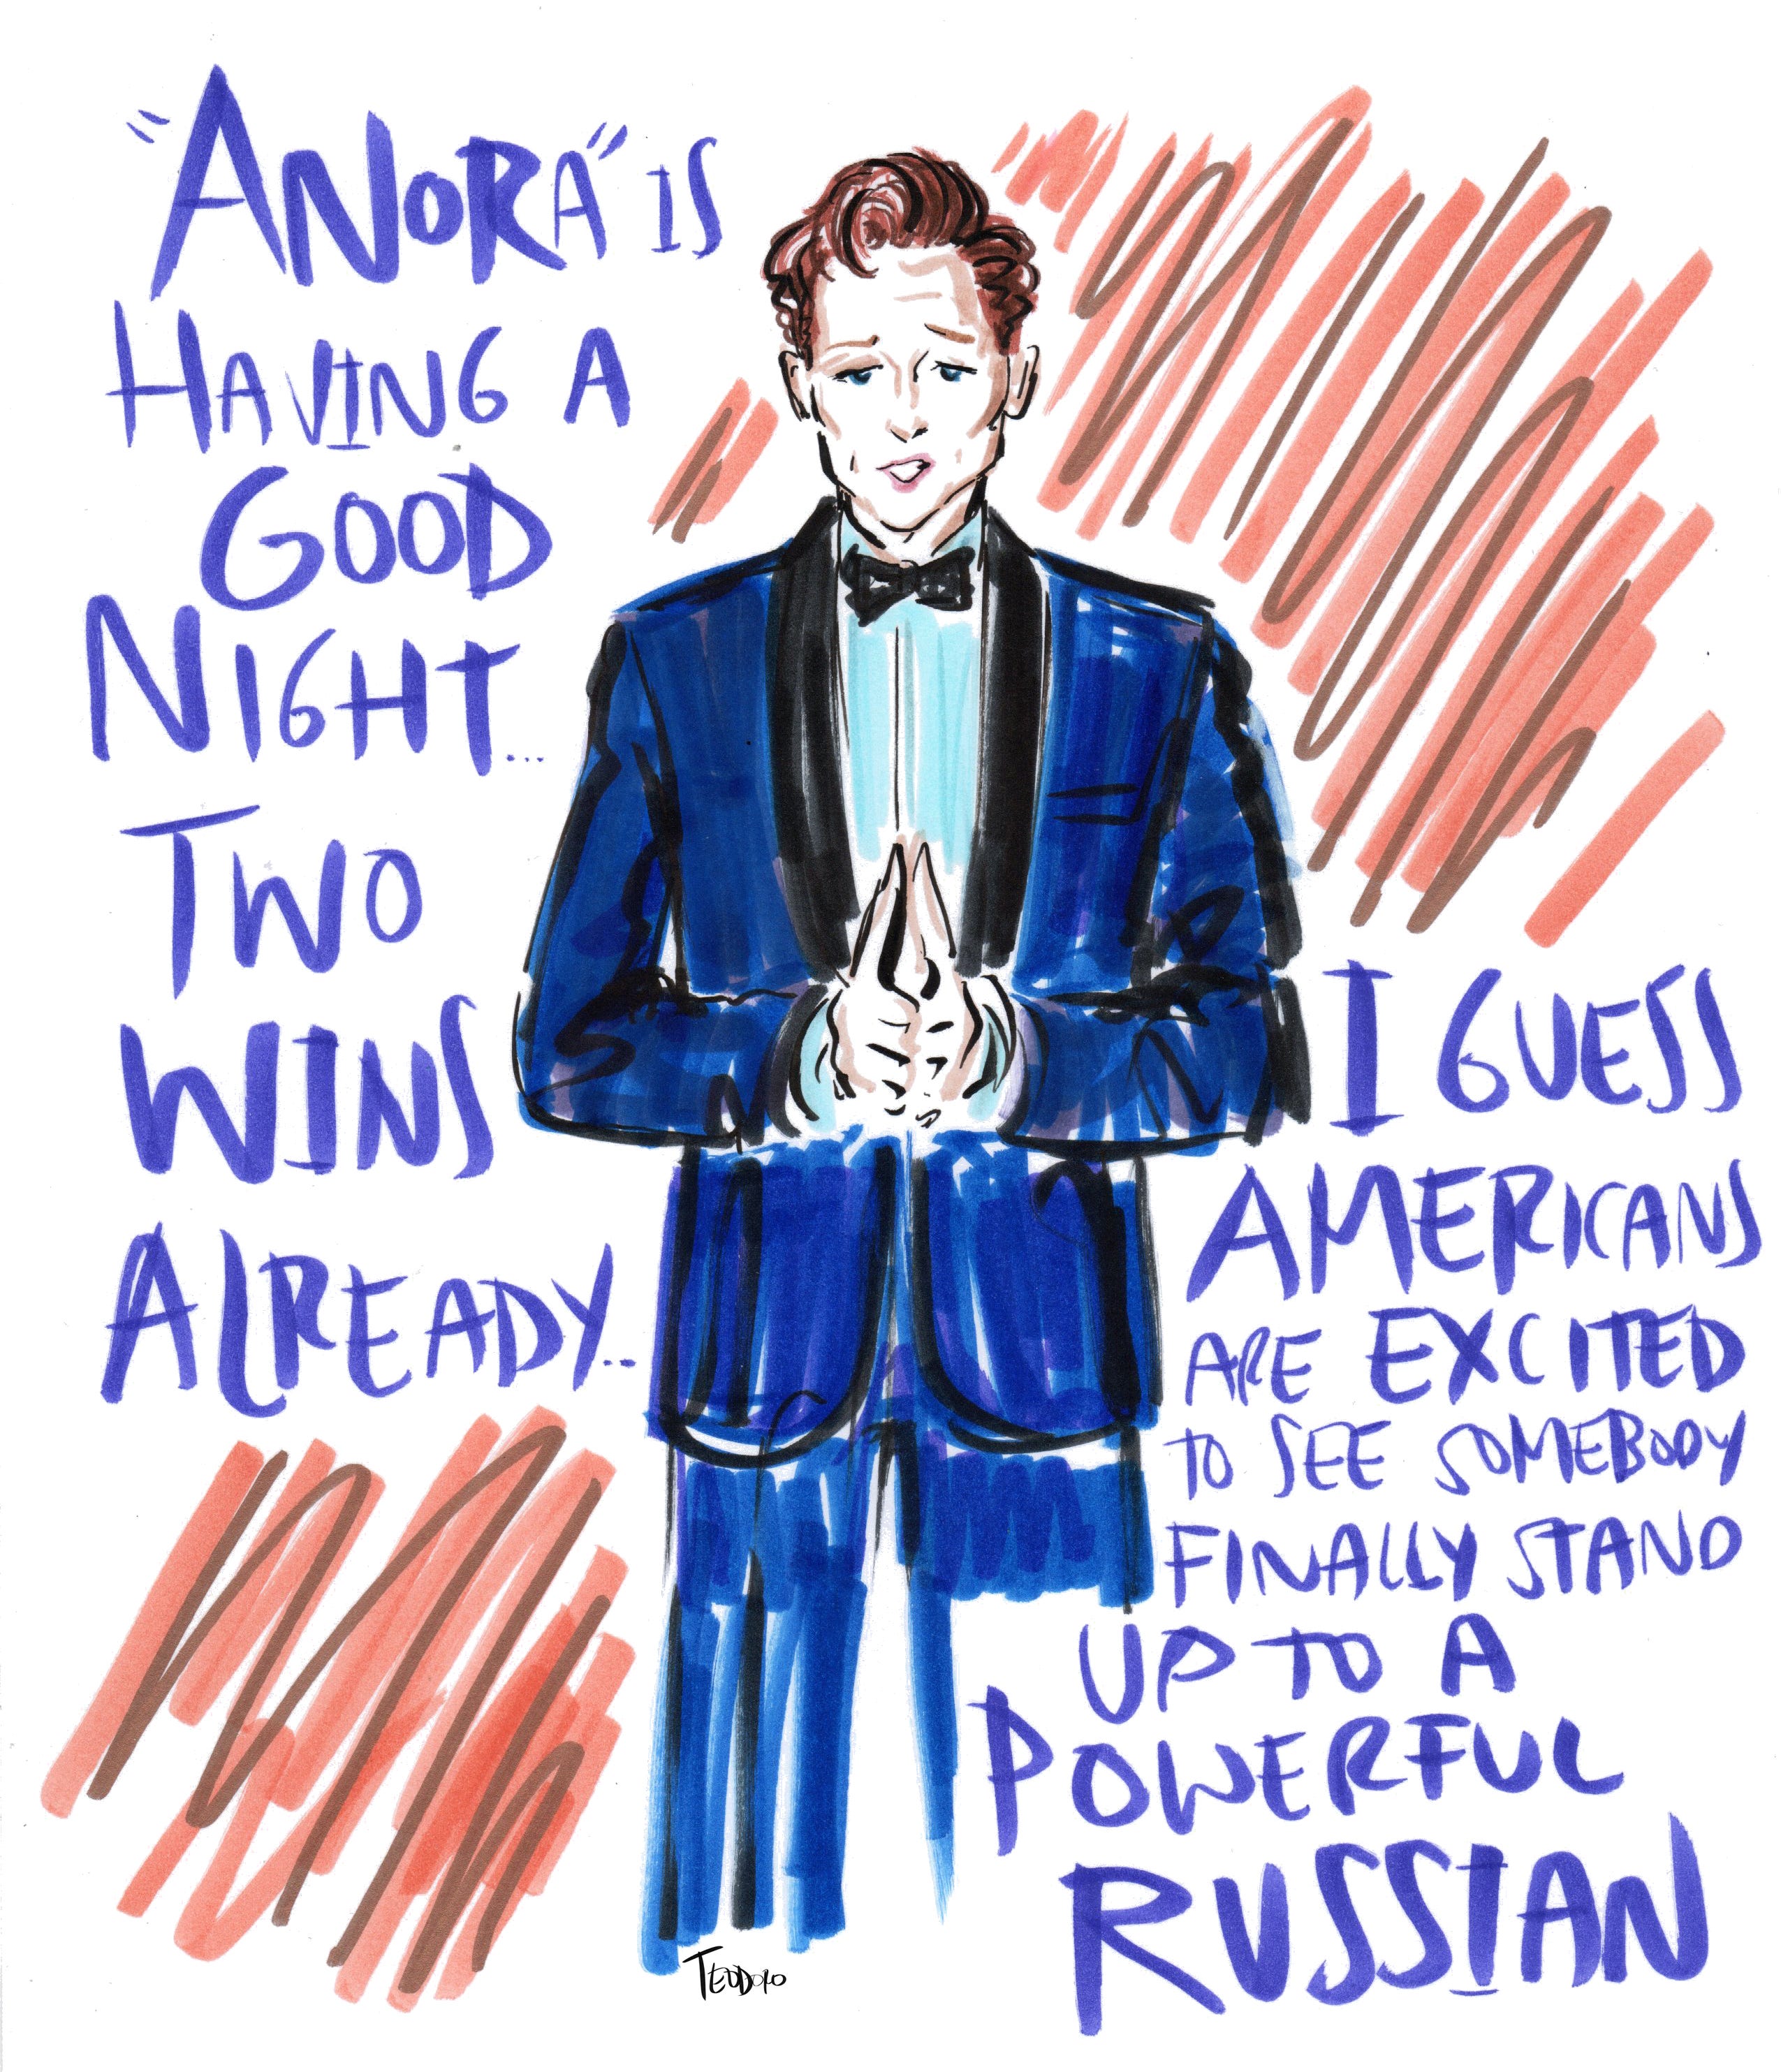 "ANORA" IS
HAVING A
GOOD
NIGHT...
TWO
WINS
ALREADY..
I GUESS
AMERICANS
ARE EXCITED
TO SEE SOMEBODY
FINALLY STAND
UP TO A
POWERFUL
RUSSIAN
TEODORO